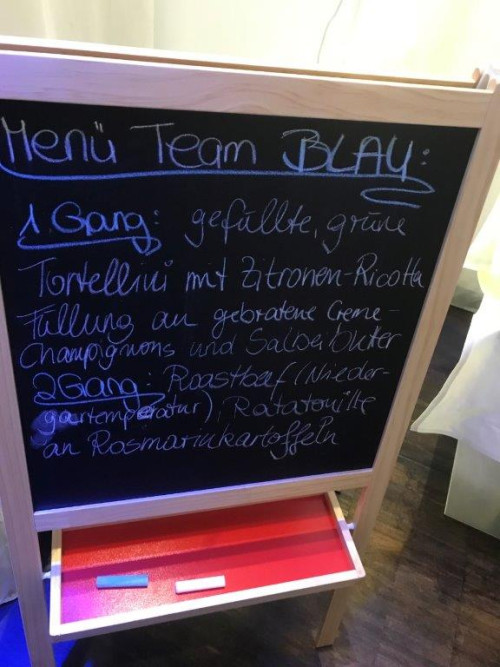 Menü Team BLAU:
1 Gang: gefüllte, grüne
Tortellini mit Zitronen-Ricotta
Füllung an gebratene Creme-
Champignons und Salbeibutter
2 Gang: Roastbeef (Nieder-
gartemperatur), Ratatouille
an Rosmarinkartoffeln